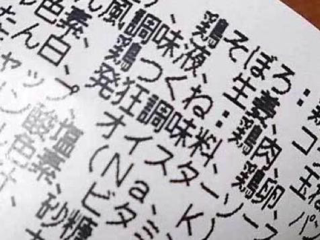 鶏そぼろ：鶏
し風調味液、生姜、コ
の色素、鶏つくね：鶏肉、玉ね
たん白、発狂調味料、鶏卵、パ
ャップ、オイスターソース
塩、(Na、K)
酸色素、ビタミ
砂糖